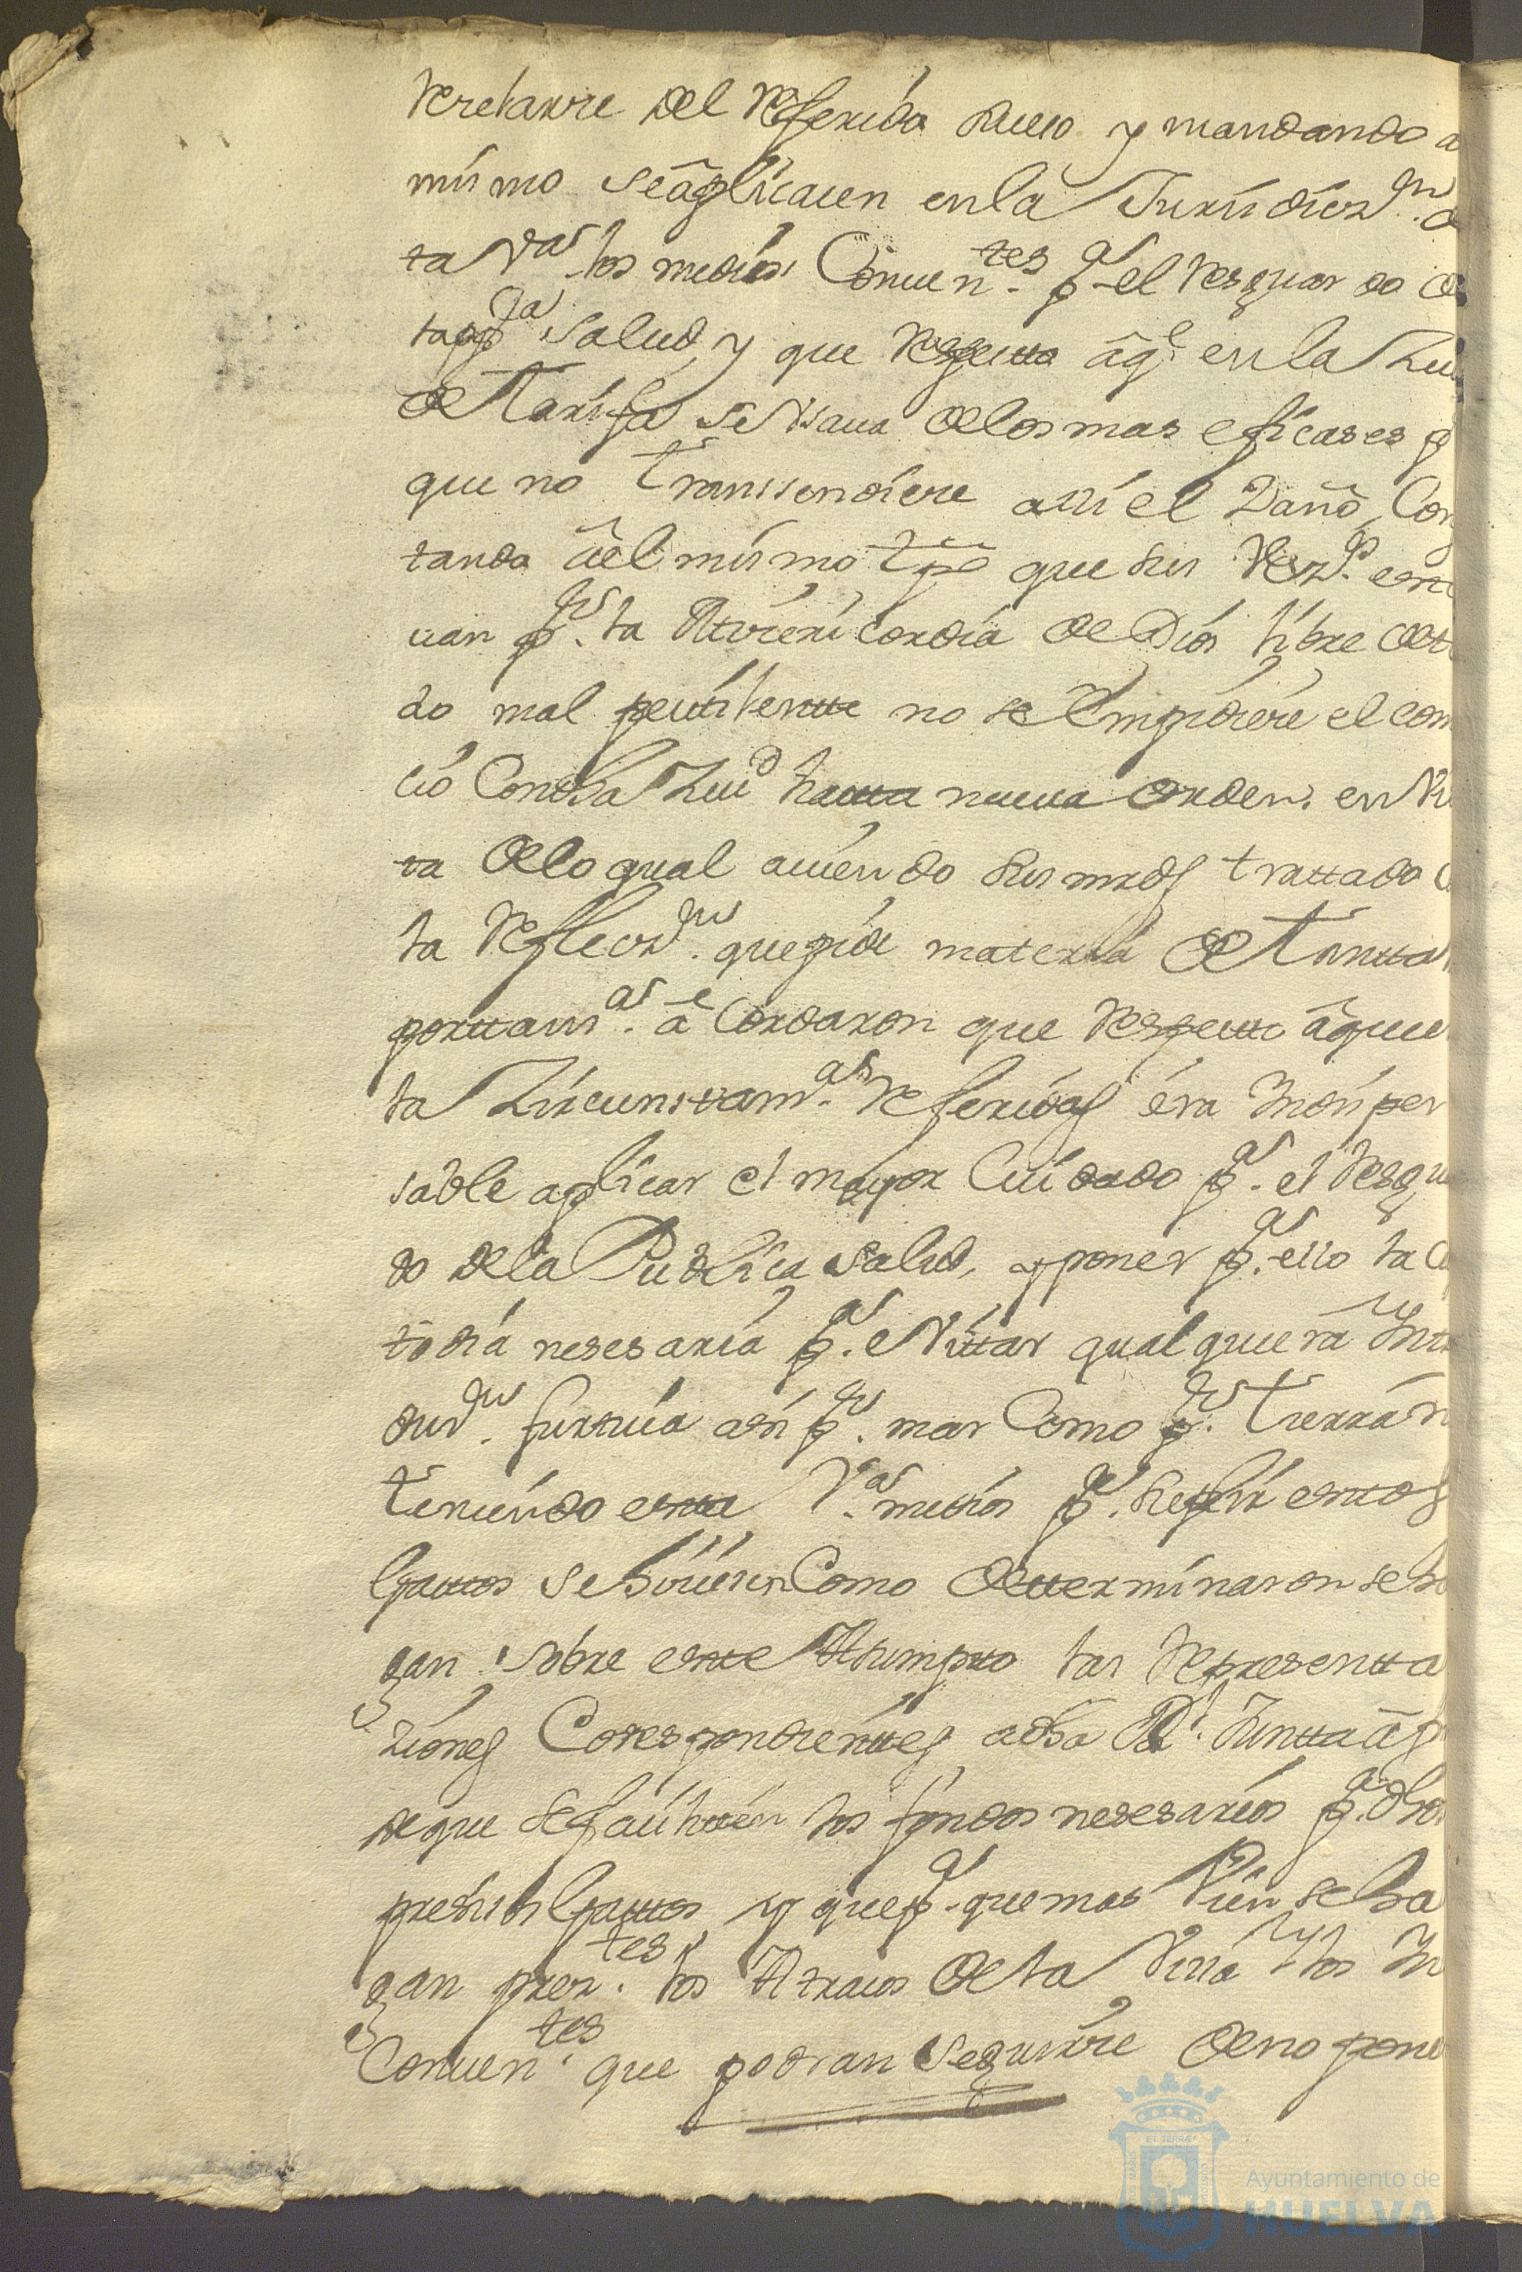 Reelarse del Referido Puelo y mandando a
mismo se aplicasen en la Jurisdicz.on d
ta V.a los medios Conuen.tes p.a el Resguardo de
ta pp.ca Salud, y que Respecto âq.e en la Ziu
de Tarifa se Vsaua delos mas eficases p
que no transsendiere assi el Daño, Cons
tando âel mismo tpō que sus Vez.os esta
uan p.r la Misericordia de Dios libre de to
do mal pestilente no se Ympidiere el com
cio Con dha Ziu.d hasta nueua orden, en Vis
ta delo qual auiendo sus mrds trattado C
la Reflecz.on que pide materia de tantta
porttanz.a âCordaron que Respecto âque en
la Zircunstanz.as Referidas éra Yndispen
sable aplicar el mayor Cuidado p.a el Resgua
do dela Publica Salud, y poner p.a ello la Cus
todia nesesaria p.a eVittar qualquiera Yntro
duz.on furttiua asi p.r mar Como p.r tierra n
teniendo esta V.a medios p.a Suplir estos
Gasttos se hiziesen Como Detterminaron se ha
gan sobre este Asumptto las Representta
ziones Correspondienttes a dha R.l Juntta â fi
de que se faciliten los fondos nesesarios p.a dhos
presisos Gasttos y que p.a que mas Vien se ha
gan prez.tes los Atrasos de la Villa Y los Yn
Conuen.tes que podran Seguirse de no pone
Ayuntamiento de
HUELVA